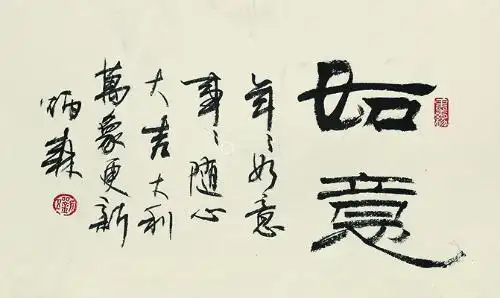 如意
年〻如意
事〻随心
大吉大利
萬象更新
炳森
劉